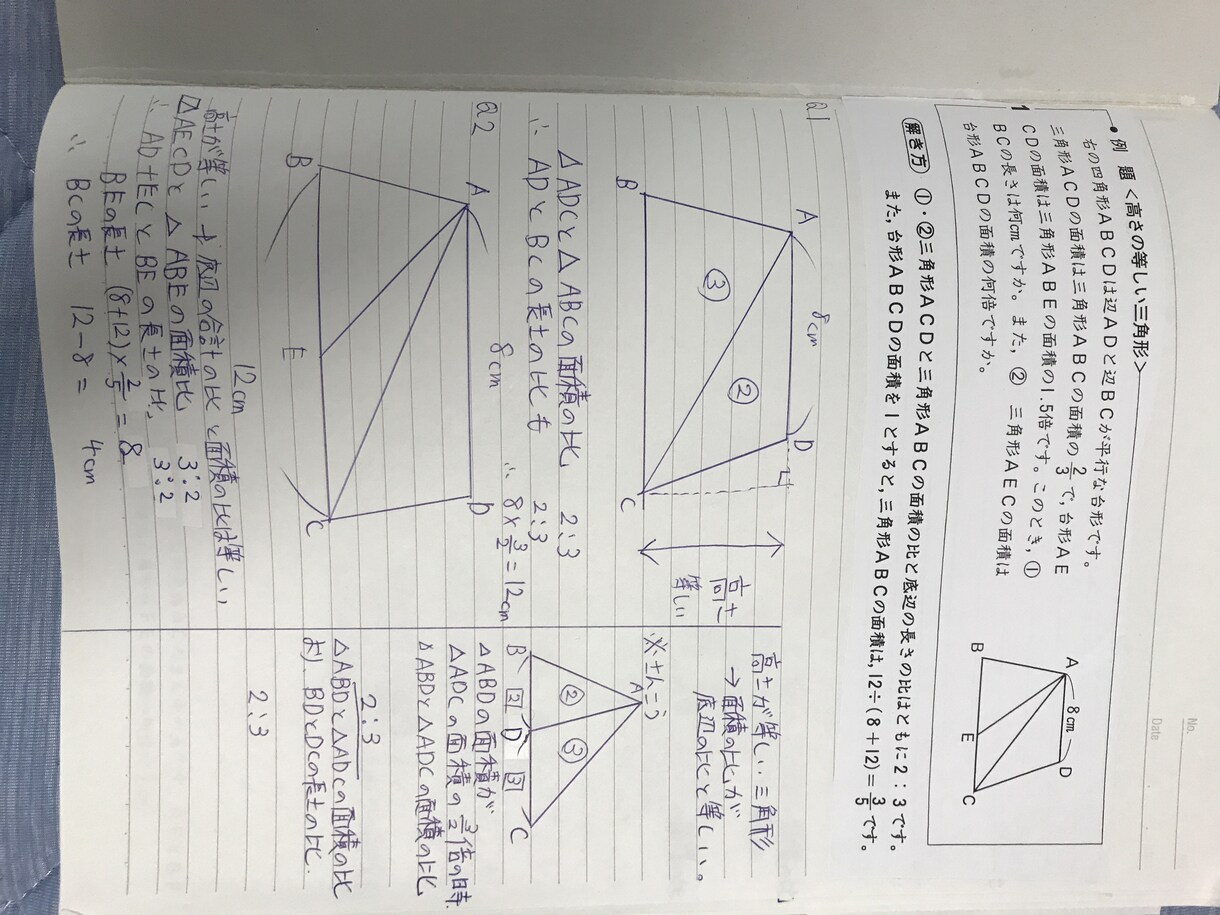 No.
Date
● 例 題 <高さの等しい三角形>
右の四角形ABCDは辺ADと辺BCが平行な台形です。
三角形ACDの面積は三角形ABCの面積の2/3で，台形AE
CDの面積は三角形ABEの面積の1.5倍です。このとき，①
BCの長さは何cmですか。また，② 三角形AECの面積は
台形ABCDの面積の何倍ですか。
A
8cm
D
B
E
C
解き方 ①・②三角形ACDと三角形ABCの面積の比と底辺の長さの比はともに2：3です。
また，台形ABCDの面積を1とすると，三角形ABCの面積は，12÷(8+12)=3/5です。
Q1
A
8cm
D
B
C
③
②
高さ
等しい
△ADCと△ABCの面積の比 2:3
∴ ADとBCの長さの比も 2:3
∴ 8×3/2=12cm
高さが等しい三角形
→面積の比が
底辺の比と等しい。
※さんこう
A
②
③
B
D
C
△ABDの面積が
△ADCの面積の2/3倍の時
△ABDと△ADCの面積の比
2:3
△ABDと△ADCの面積の比
より、BDとDCの長さの比
2:3
Q2
8cm
A
D
B
E
C
12cm
高さが等しい → 底辺の合計の比と面積の比は等しい
AECDと△ABEの面積比 3:2
∴ AD+ECとBEの長さの比 3:2
BEの長さ (8+12)×2/5=8
∴ の長さ 12-8= 4cm